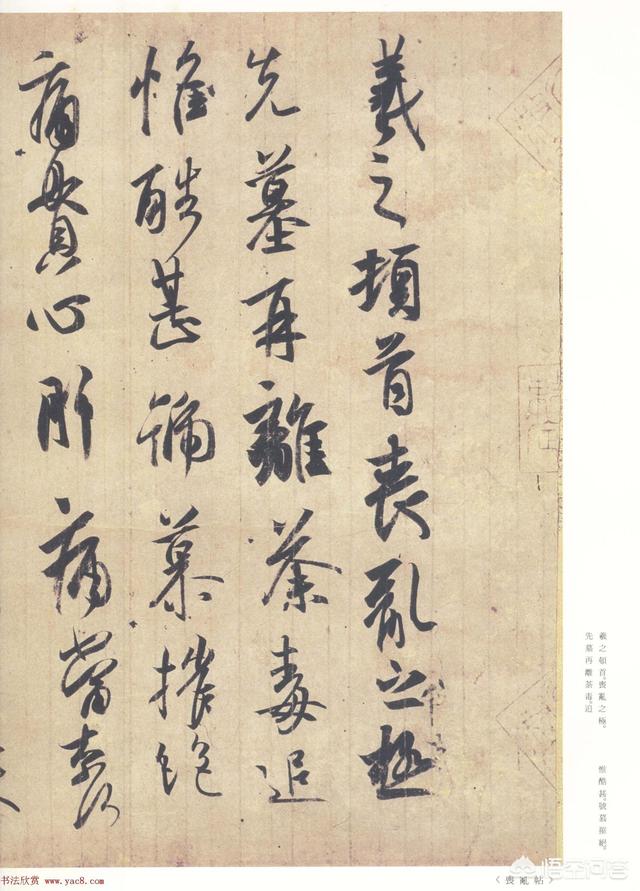 羲之頓首喪亂之極
先墓再離荼毒追
惟酷甚號慕摧絕
痛貫心肝痛當柰何
羲之頓首。喪亂之極。
先墓再離荼毒。追
惟酷甚。號慕摧絕。
〈喪亂帖〉
书法欣赏 www.yac8.com
悟空问答